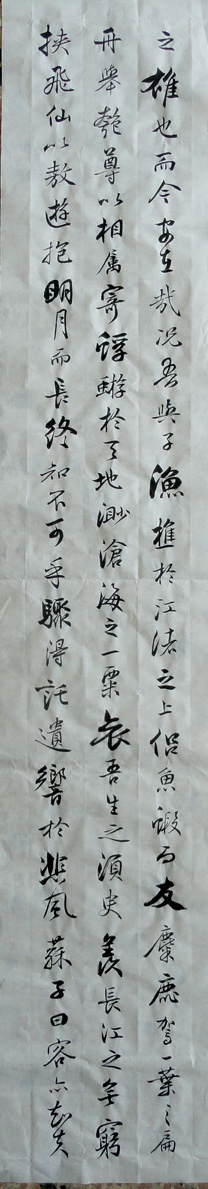 之雄也而今安在哉況吾與子漁樵於江渚之上侶魚蝦而友麋鹿駕一葉之扁
舟舉匏尊以相屬寄蜉蝣於天地渺滄海之一粟哀吾生之須臾羨長江之無窮
挾飛仙以敖遊抱明月而長終知不可乎驟得託遺響於悲風蘇子曰客亦知夫